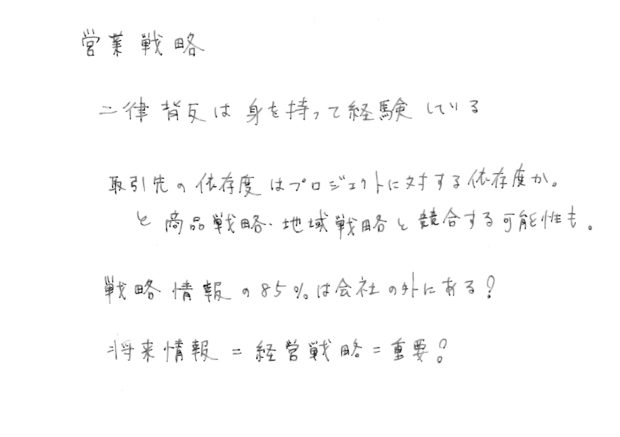 営業戦略
二律背反は身を持って経験している
取引先の依存度はプロジェクトに対する依存度か。
と商品戦略・地域戦略と競合する可能性も。
戦略情報の85%は会社の外にある?
将来情報=経営戦略=重要?